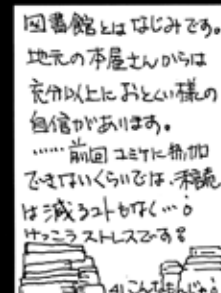 図書館とはなじみです。
地元の本屋さんからは
充分以上におとくい様の
自信があります。
……前回コミケに参加
できないくらいでは、未読
は減るコトもなく…。
けっこうストレスです。
こんなもんじゃ